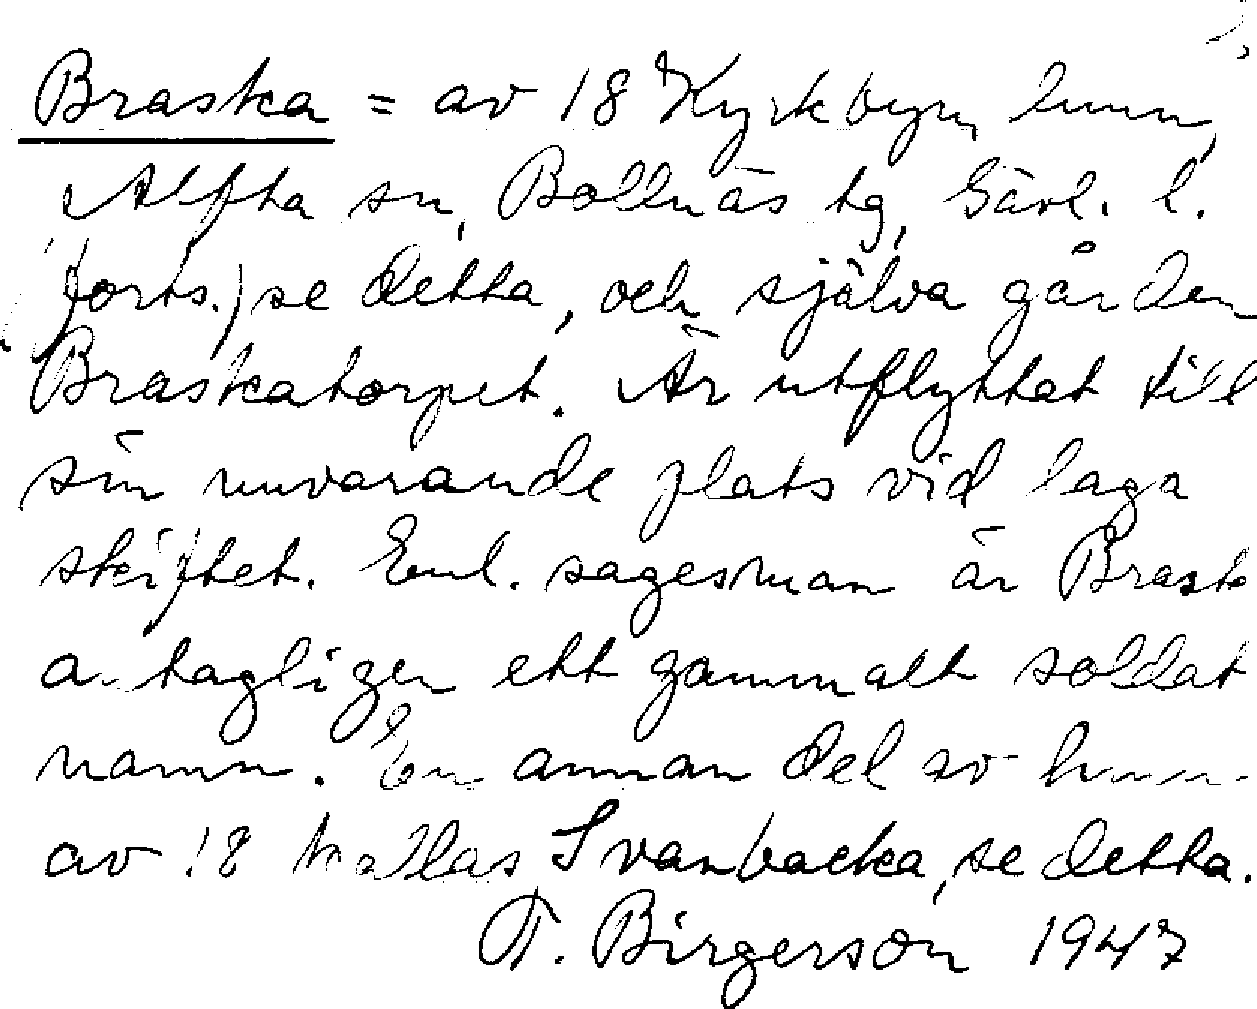 Braska = av 18 Kyrkbyn, hmn,
Alfta sn, Bollnäs tg, Gävl. l.
(forts.) se detta, och själva gården
Braskatorpet. Är utflyttat till
sin nuvarande plats vid laga
skiftet. Enl. sagesman är Brask
antagligen ett gammalt soldat
namn. En annan del av hmn
av 18 kallas Svanbacka, se detta.
T. Birgerson 1947